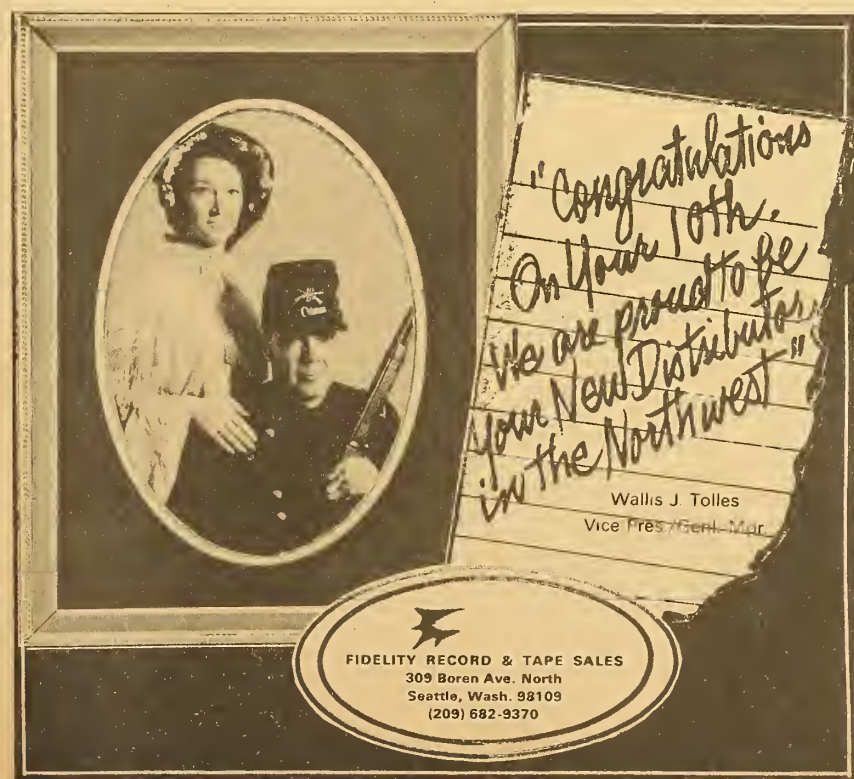 "Congratulations
On Your 10th.
We are proud to be
Your New Distributor
in the Northwest"
Wallis J. Tolles
Vice Pres./Genl. Mgr.
FIDELITY RECORD & TAPE SALES
309 Boren Ave. North
Seattle, Wash. 98109
(209) 682-9370